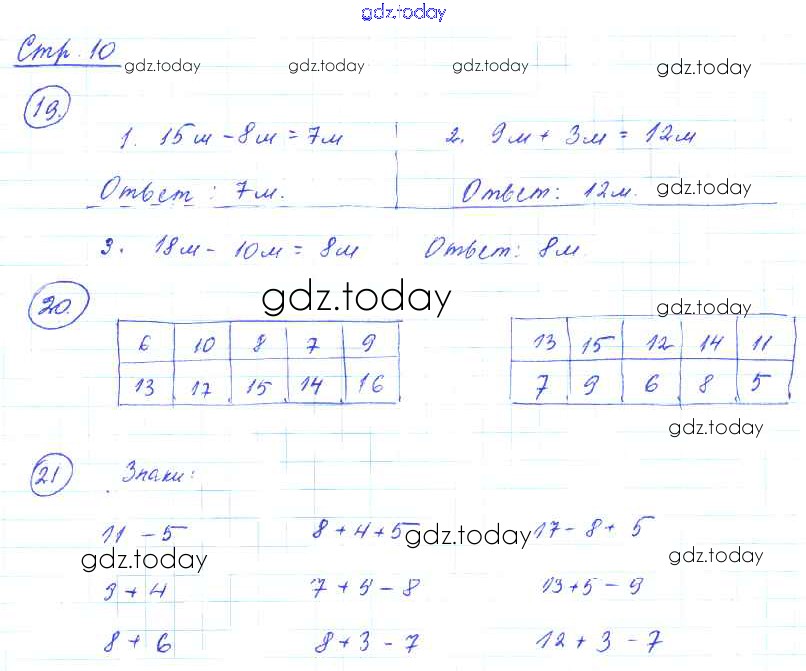 gdz.today
Стр. 10
gdz.today gdz.today gdz.today gdz.today
19.
1. 15м - 8м = 7м 2. 9м + 3м = 12м
Ответ: 7м. Ответ: 12м. gdz.today
3. 18м - 10м = 8м Ответ: 8м
20. gdz.today gdz.today
6 10 8 7 9 13 15 12 14 11
13 17 15 14 16 7 9 6 8 5
gdz.today
21 Знаки:
11 - 5 8 + 4 + 5 gdz.today 17 - 8 + 5
gdz.today gdz.today
9 + 4 7 + 5 - 8 13 + 5 - 9
8 + 6 8 + 3 - 7 12 + 3 - 7